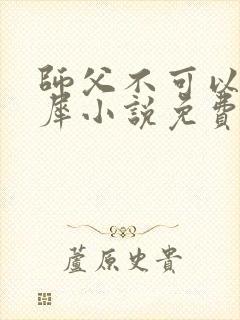 師父不可以
犀小說免費
蘆原史貴